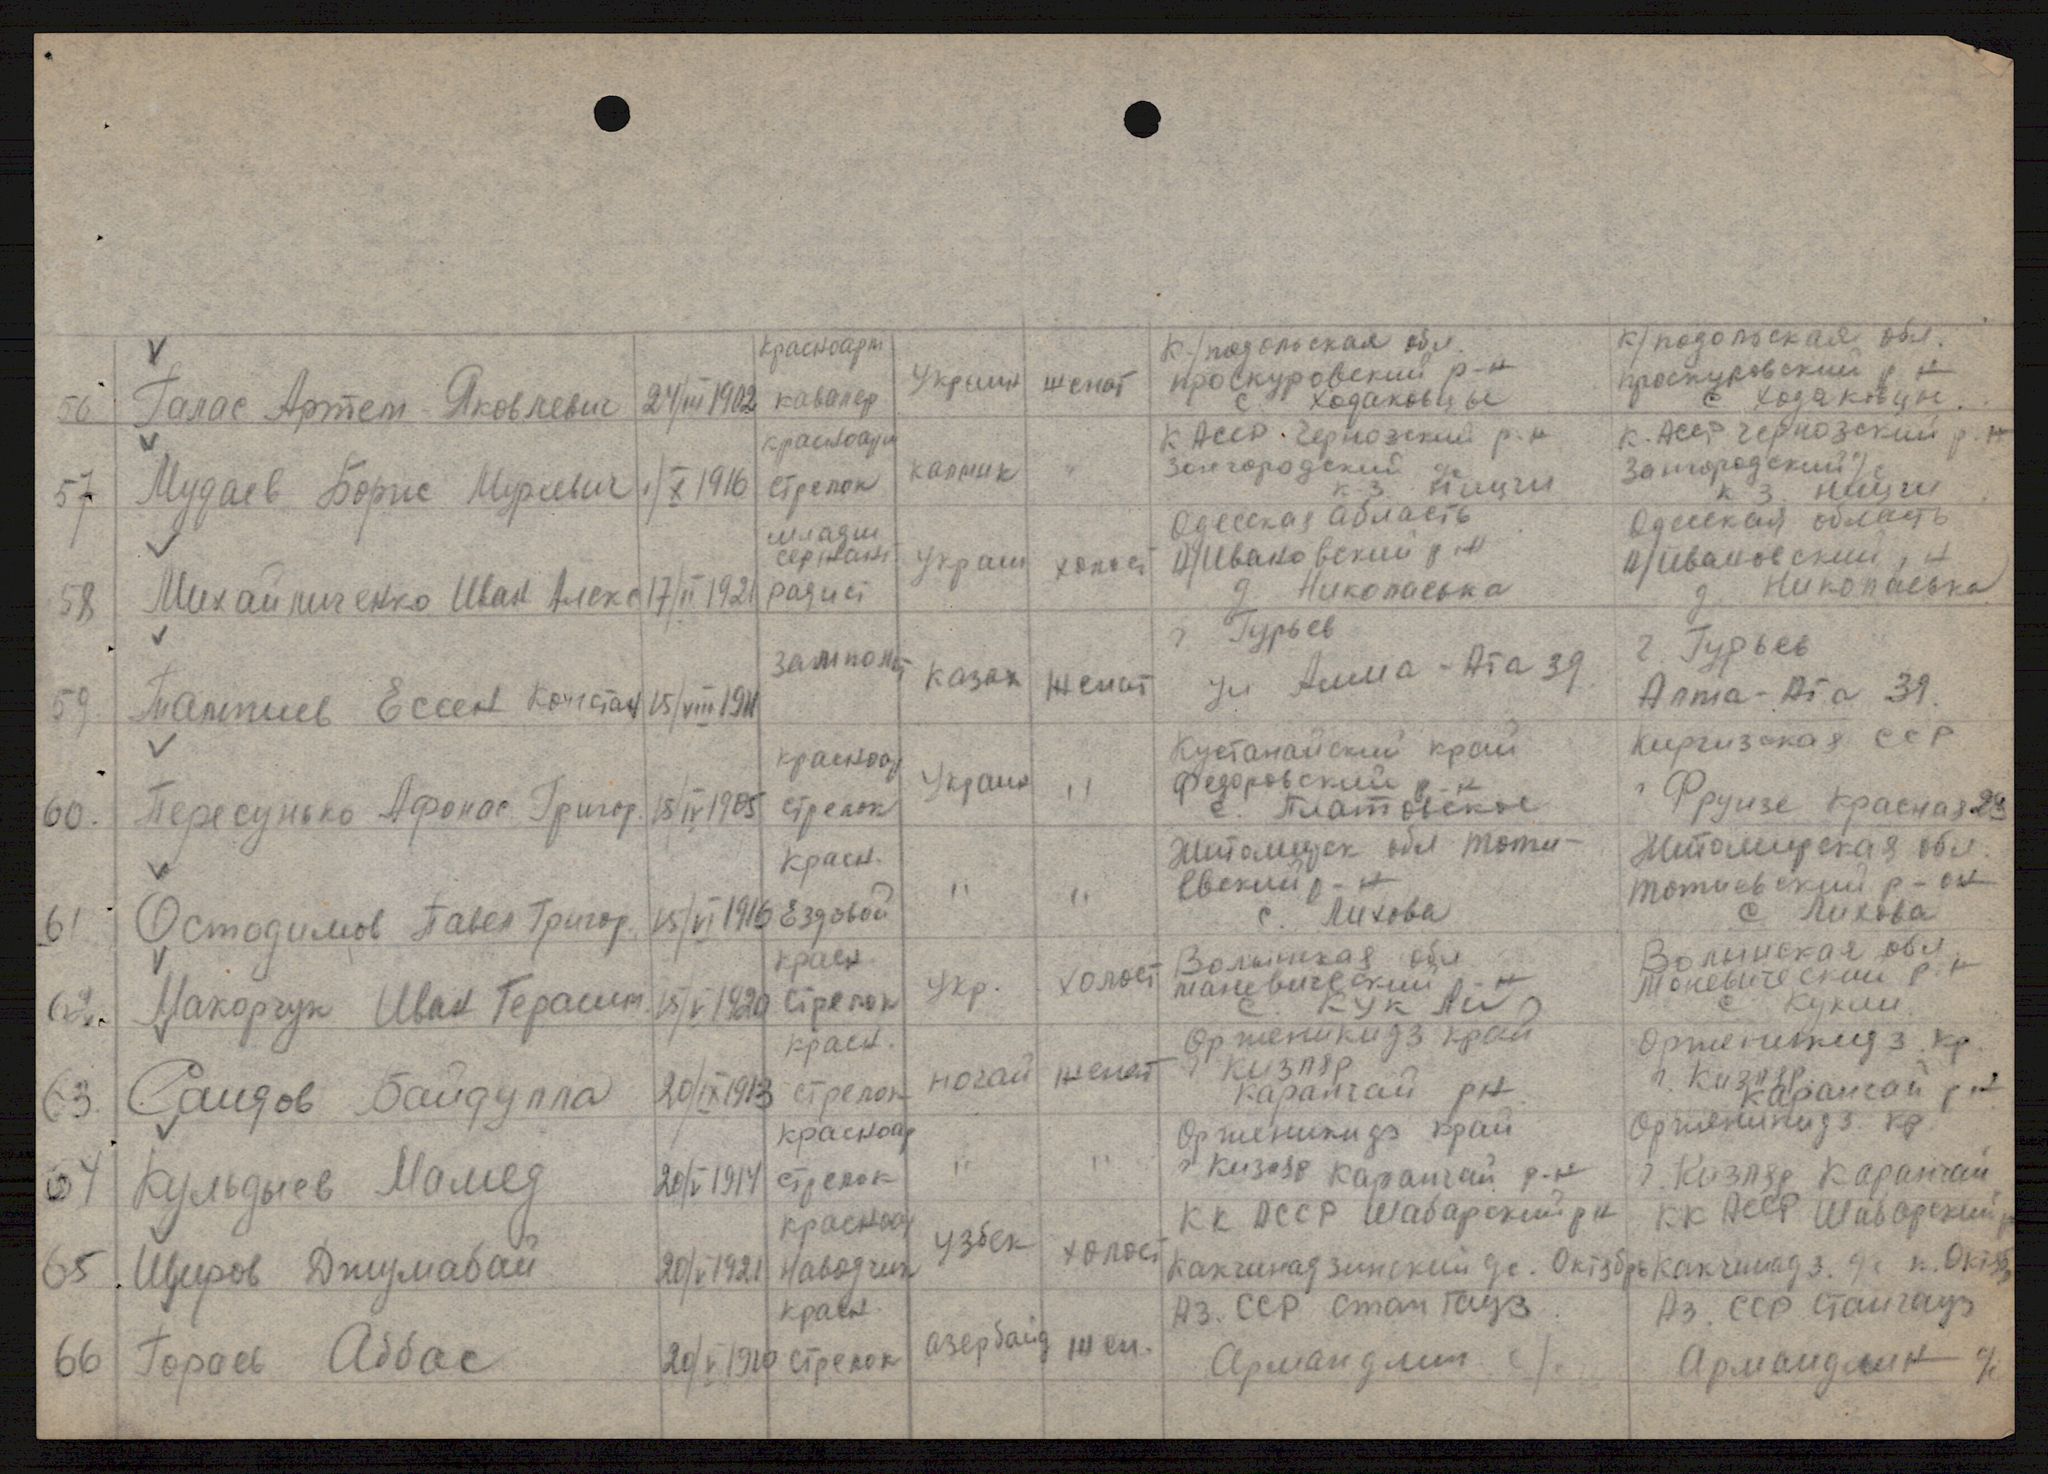 56 Галас Артем Яковлевич 24/III 1902 красноарм кавалер Украин женат К/подольская обл. проскуровский р-н с. Ходаковцы К/подольская обл. проскуровский р-н с. Ходаковцы.
57 Мудаев Борис 1/X 1916 красноарм стрелок калмик " К АССР Чернозский р-н к. АССР Чернозский р-н
58 Михайличенко Иван Алекс 17/II 1921 младш сержант радист Украин холост Одесская область Н/Ивановский р-н д Николаевка Одесская область Н/Ивановский р-н д. Николаевка
59 Ессен Констан 15/VIII 1911 замполит казах женат г Гурьев ул Алма-Ата 39 г Гурьев Алма-Ата 39.
60. Пересунько Афонас Григор. 15/IV 1905 красноар стрелок Украин " Кустанайский край Федоровский р-н с. Платовское Киргизская ССР г Фрунзе Красная 29
61 Остодимов Павел Григор. 15/VI 1916 Красн. Ездовой " " Житомирск обл с. Лихова Житомирская обл. р-он с Лихова
62. Макорчук Иван Герасим. 15/V 1920 красн стрелок Укр. холост Волынская обл маневический р-н с. Волынская обл Маневический р-н с Кукли
63. Саидов Байдулла 20/IX 1913 красн. стрелок ногай женат Орженикидз край г Кизляр Карангай рн Орженикидз. кр. г. Кизляр Карангай р-н
64 Кульдыев Мамед 20/V 1914 красноар стрелок " " Орженикидз край г Кизляр Карангай р-н Орженикидз. кр. г. Кизляр Карангай
65 Щиров Джумабай 20/V 1921 красноар Наводчик узбек холост КК АССР Шабарский рн с. Октябрь КК АССР Шабарский р
66 Гораев Аббас 20/V 1920 красн стрелок азербайд жен. Аз. ССР Армандлин с/. Аз. ССР Армандлин